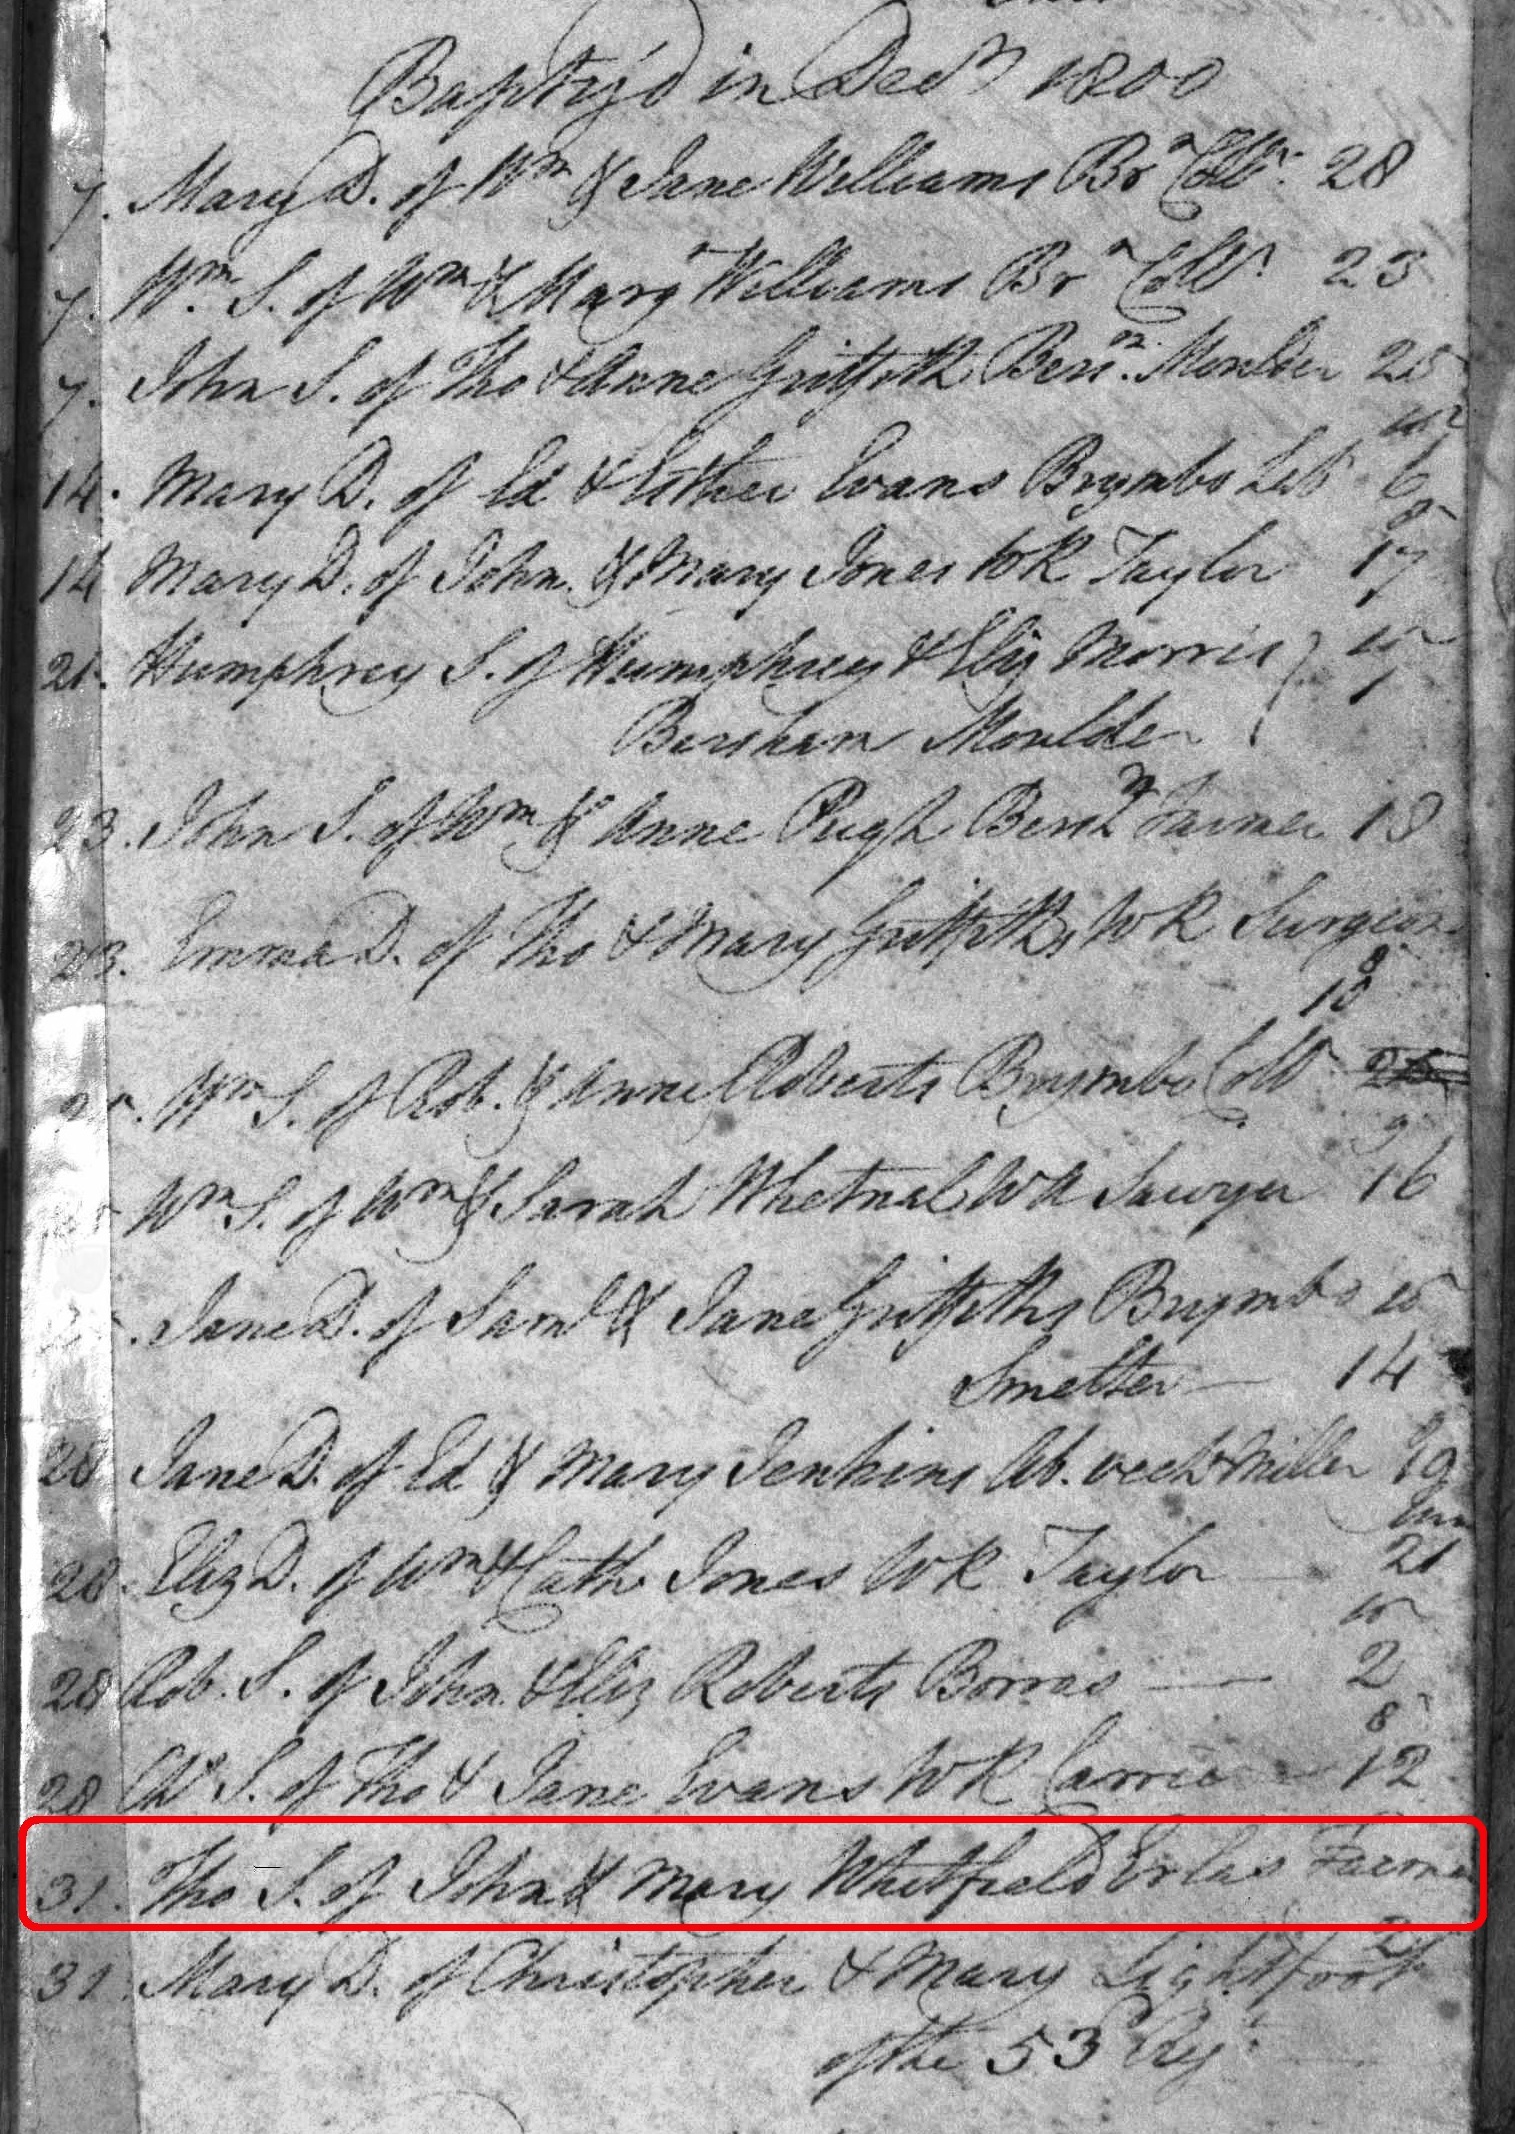 Baptiz'd in Decr 1800
7. Mary D. of Wm & Jane Williams Brn Collr. 28
7. Wm. S. of Wm & Mary Williams Brn Collr. 23
7. John S. of Tho & Anne Griffith Bersm. Moulder 25
14. Mary D. of Ed & Esther Evans Brymbo Lab 6
14 Mary D. of John & Mary Jones WR Taylor 17
21. Humphrey S. of Humphrey & Eliz Morris
Bersham Moulder
23. John S. of Wm & Anne Pugh Bershm Farmer 18
23. Emma D. of Tho & Mary Griffiths WR Surgeon
18
Wm S. of Rob. & Anne Roberts Brymbo Collr
Wm S. of Wm & Sarah Whetnal WR Sawyer 16
Jane D. of Saml & Jane Griffiths Brymbo
Smelter 14
28 Jane D. of Ed & Mary Jenkins Ab. Miller 19
28 Eliz D. of Wm & Cath Jones WR Taylor 21
28 Rob. S. of John & Eliz Roberts Borras 2
8
28 S. of Tho & Jane Evans WR Carrier 12
31. Tho S. of John & Mary Whitfield Erlas Farmer
21
31 Mary D. of Christopher & Mary Lightfoot
of the 53d Regt